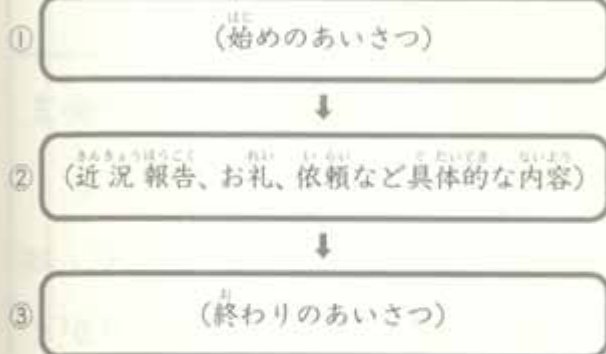 ① (始めのあいさつ)
② (近況報告、お礼、依頼など具体的な内容)
③ (終わりのあいさつ)